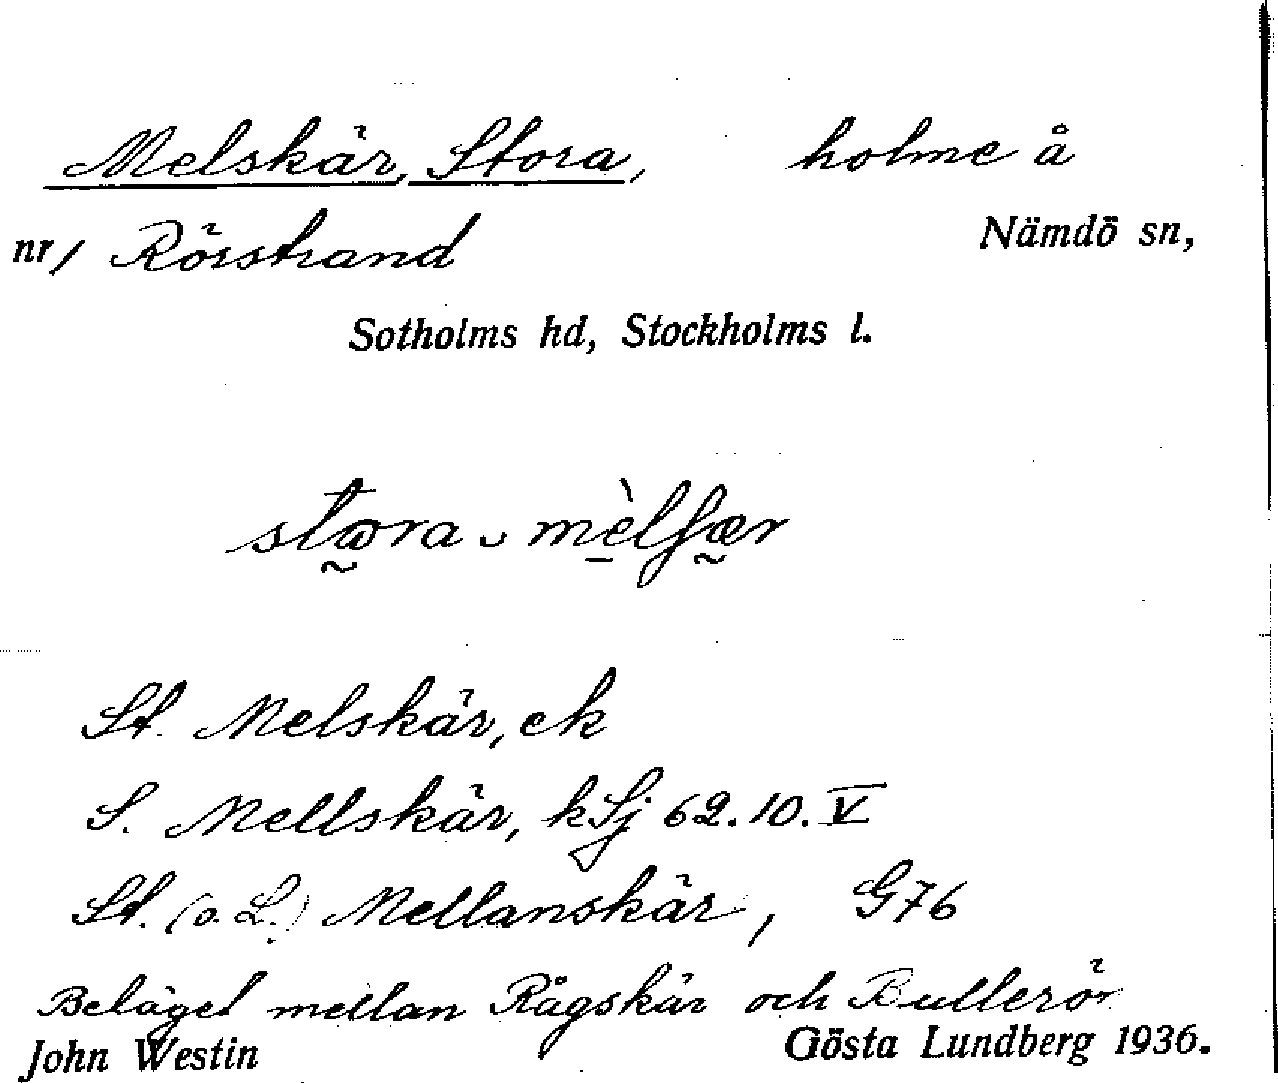 Melskär, Stora, holme å
nr/ Rörstrand Nämdö sn,
Sotholms hd, Stockholms l.
stωra ᴗ mèlʃær
St. Melskär, ek
S. Mellskär, kSj 62.10.V
St. (o. L.) Mellanskär, G76
Beläget mellan Rågskär och Bullerö
John Westin Gösta Lundberg 1936.